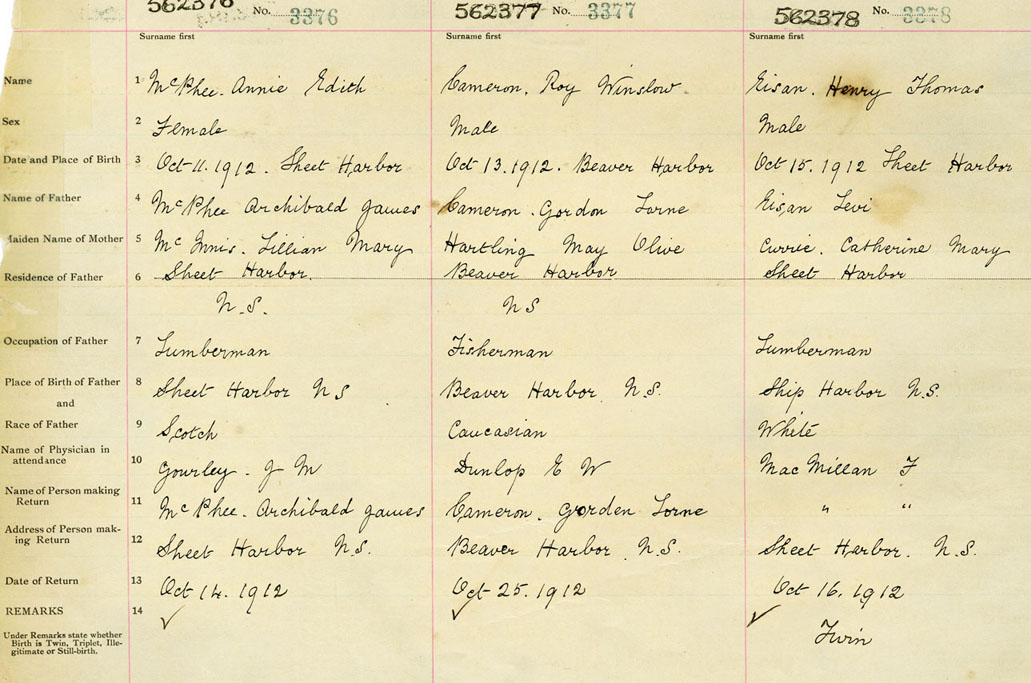 562376 No. 3376 562377 No. 3377 562378 No. 3378
Surname first Surname first Surname first
Name 1 McPhee. Annie Edith Cameron. Roy Winslow Eisan. Henry Thomas
Sex 2 Female Male Male
Date and Place of Birth 3 Oct 11. 1912. Sheet Harbor Oct 13. 1912. Beaver Harbor Oct 15. 1912 Sheet Harbor
Name of Father 4 McPhee Archibald James Cameron. Gordon Lorne Eisan Levi
Maiden Name of Mother 5 McInnis. Lillian Mary Hartling May Olive Currie. Catherine Mary
Residence of Father 6 Sheet Harbor. Beaver Harbor Sheet Harbor
N.S. NS
Occupation of Father 7 Lumberman Fisherman Lumberman
Place of Birth of Father 8 Sheet Harbor NS Beaver Harbor N.S. Ship Harbor N.S.
and
Race of Father 9 Scotch Caucasian White
Name of Physician in
attendance 10 Gourley. J M Dunlop E W MacMillan F
Name of Person making
Return 11 McPhee. Archibald James Cameron. Gorden Lorne " "
Address of Person mak-
ing Return 12 Sheet Harbor N.S. Beaver Harbor. N.S. Sheet Harbor. N.S.
Date of Return 13 Oct 14. 1912 Oct 25. 1912 Oct 16. 1912
REMARKS 14 ✓ ✓ ✓
Under Remarks state whether
Birth is Twin, Triplet, Ille-
gitimate or Still-birth. Twin